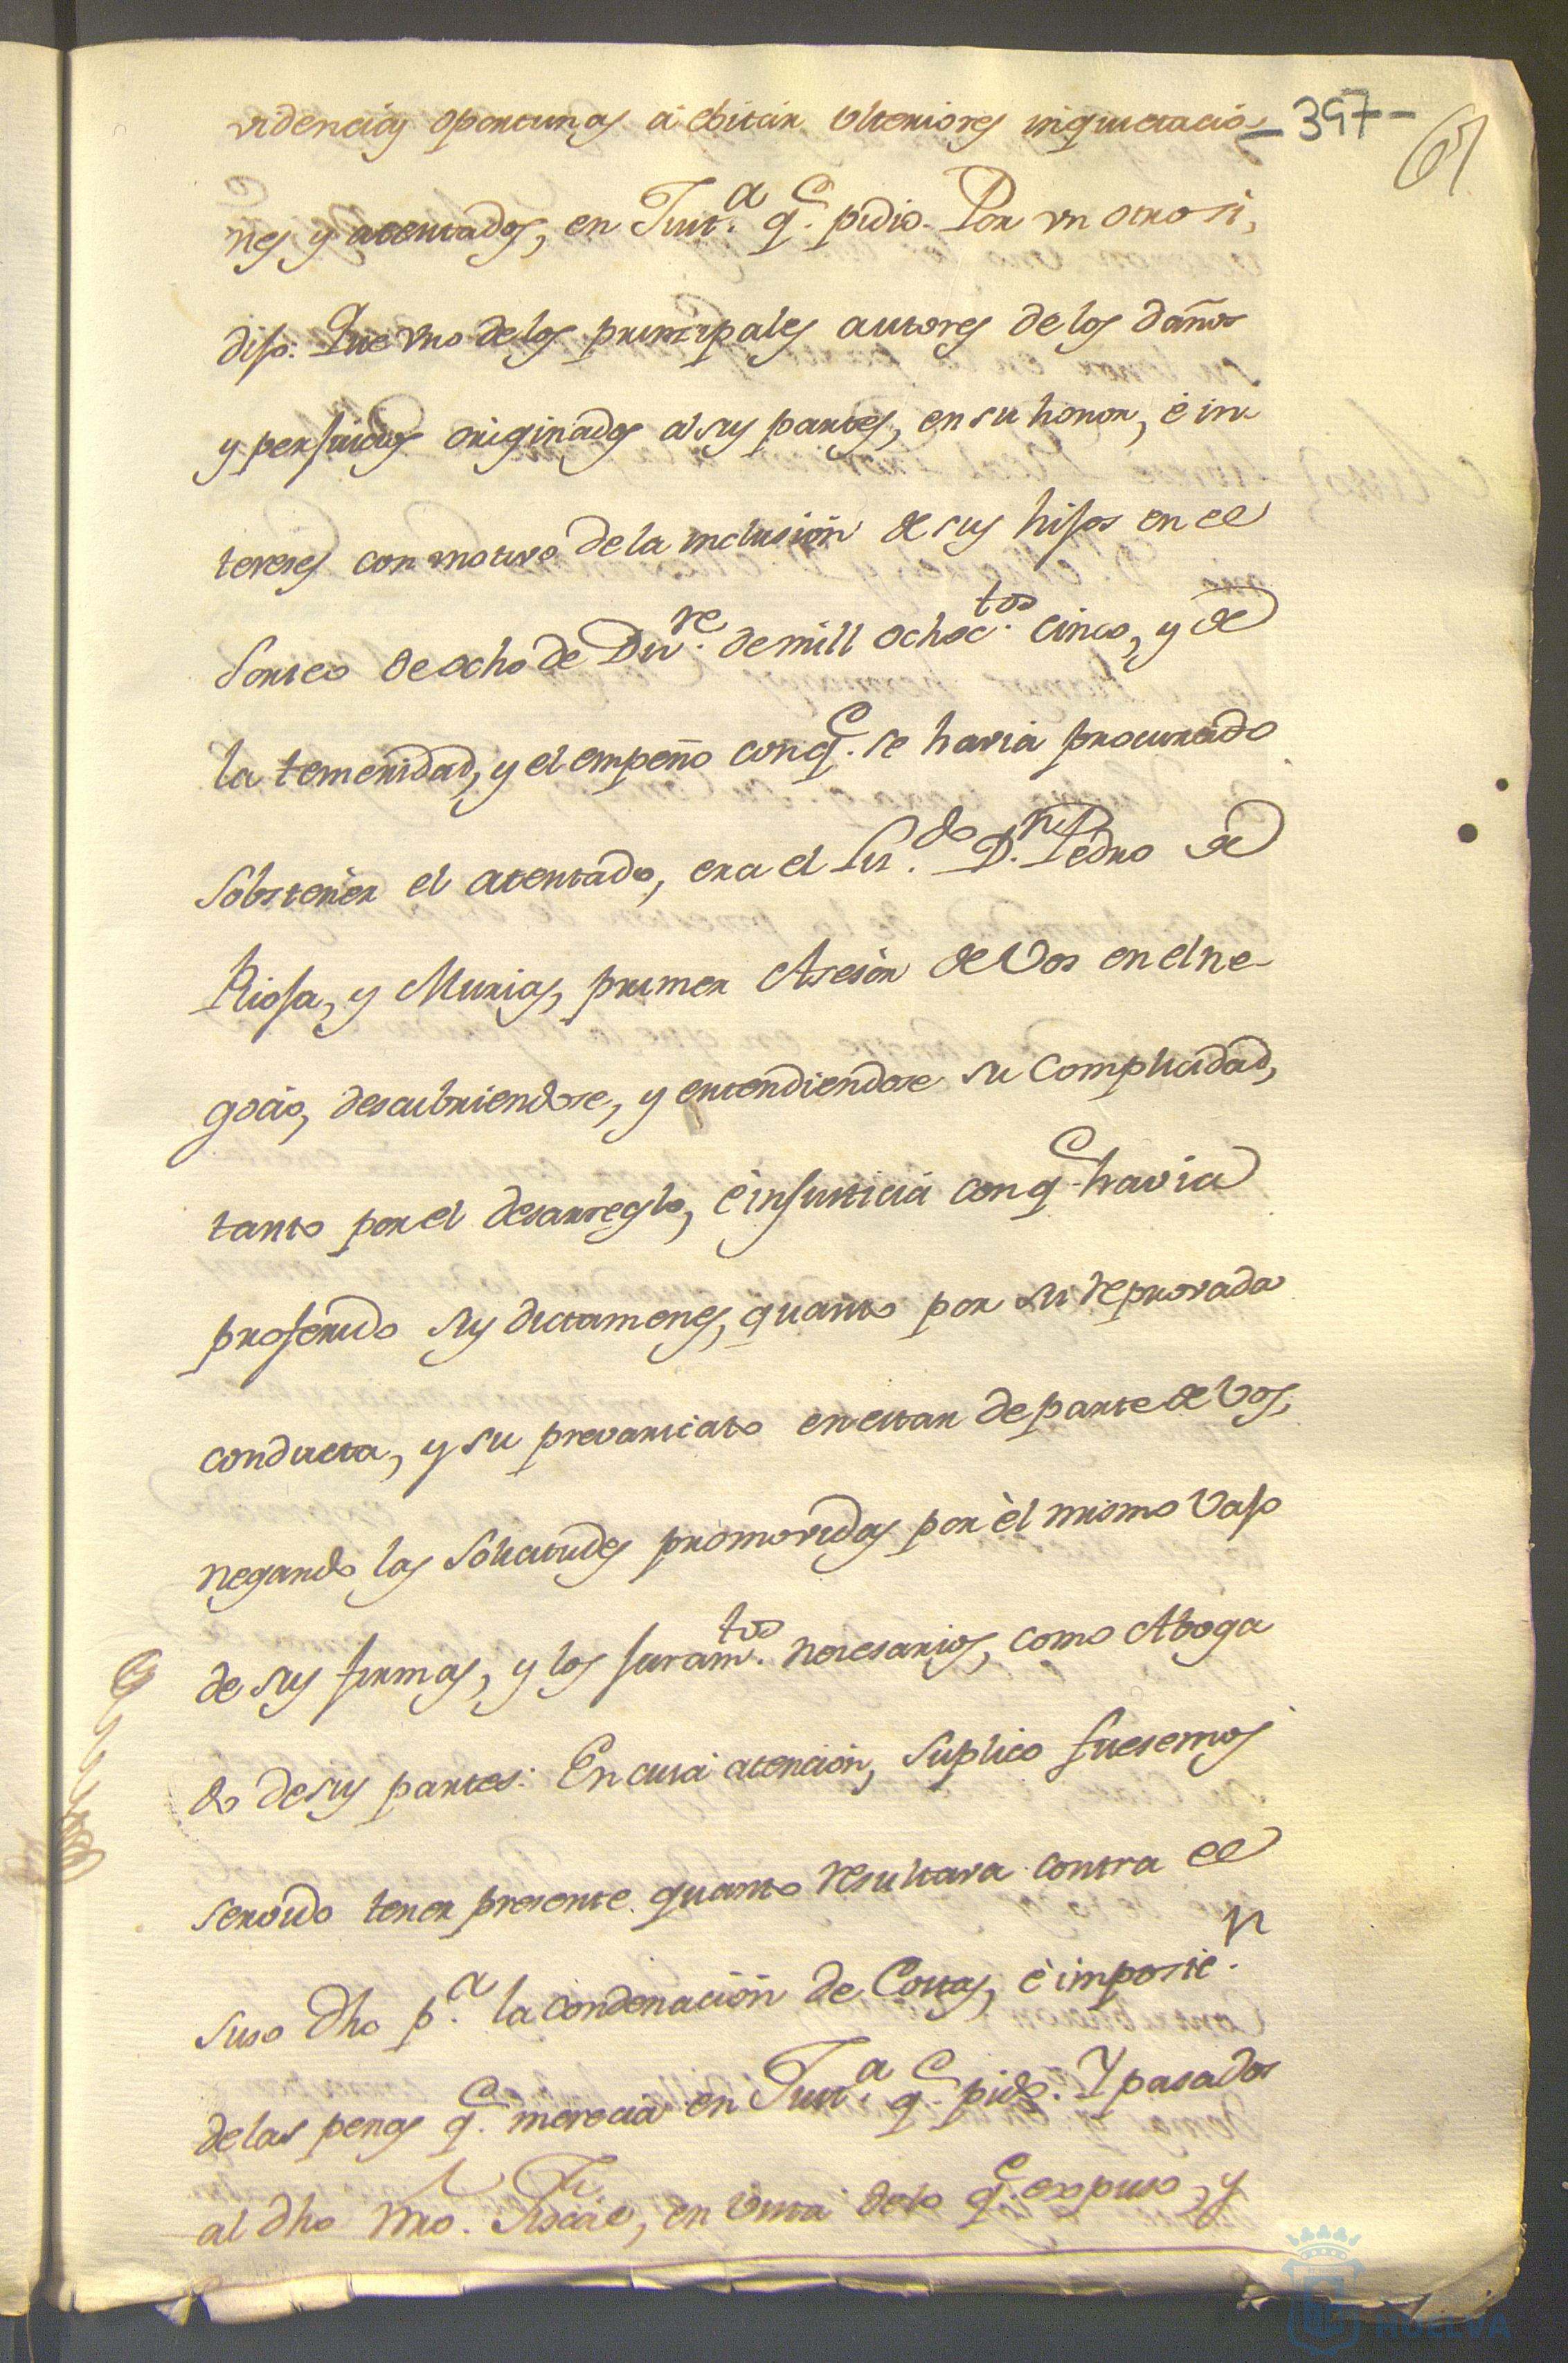 -397-
videncias oportunas à ebitàr ulteriores inquietacio-
nes y atentados, en Just.ª q.e pidio. Por un otrosi,
dijo: Que uno de los principales autores de los daños
y perjuicios originados à sus partes, en su honor, è in
tereses con motivo de la inclusiòn de sus hijos en el
Sorteo de ocho de Div.re de mill ochoc.tos cinco, y de
la temeridad, y el empeño con q.e se havia procurado
sobstener el atentado, era el Liz.do D.n Pedro de
Rioja, y Murias, primer Asesòr de Vos en el ne-
gocio, descubriendose, y entendiendose su Complicidad,
tanto por el desarreglo, è injusticia con q.e havia
proferido sus dictamenes, quanto por su reprovada
conducta, y su prevaricato en estar de parte de Vos,
negando las Solicitudes promovidas por èl mismo vajo
de sus firmas, y los juram.tos necesarios, como Aboga
do de sus partes: En cuia atenciòn, suplico fuesemos
servido tener presente quanto resultava contra el
suso dho p.ª la condenaciòn de Costas, è imposic.n
de las penas q.e merecia en Just.ª q.e pido. Y pasados
al dho Nro. Fiscal, en vista de lo q.e expuso, y